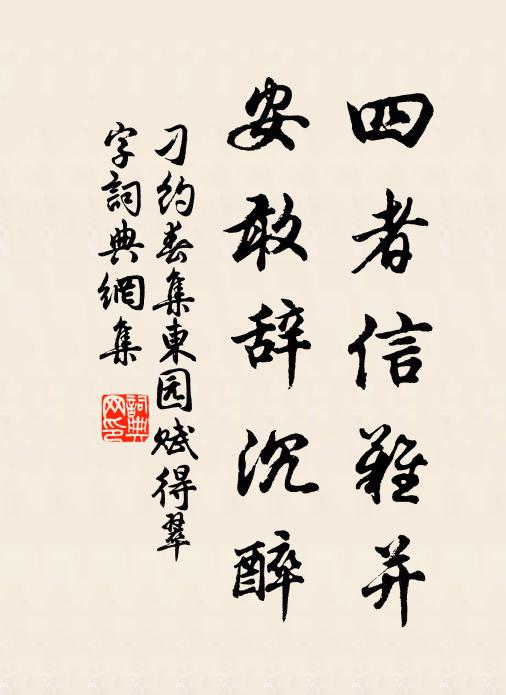 四者信难并
安敢辞沉醉
刁约春集東园赋得翠
字詞典網集
詞典
网印